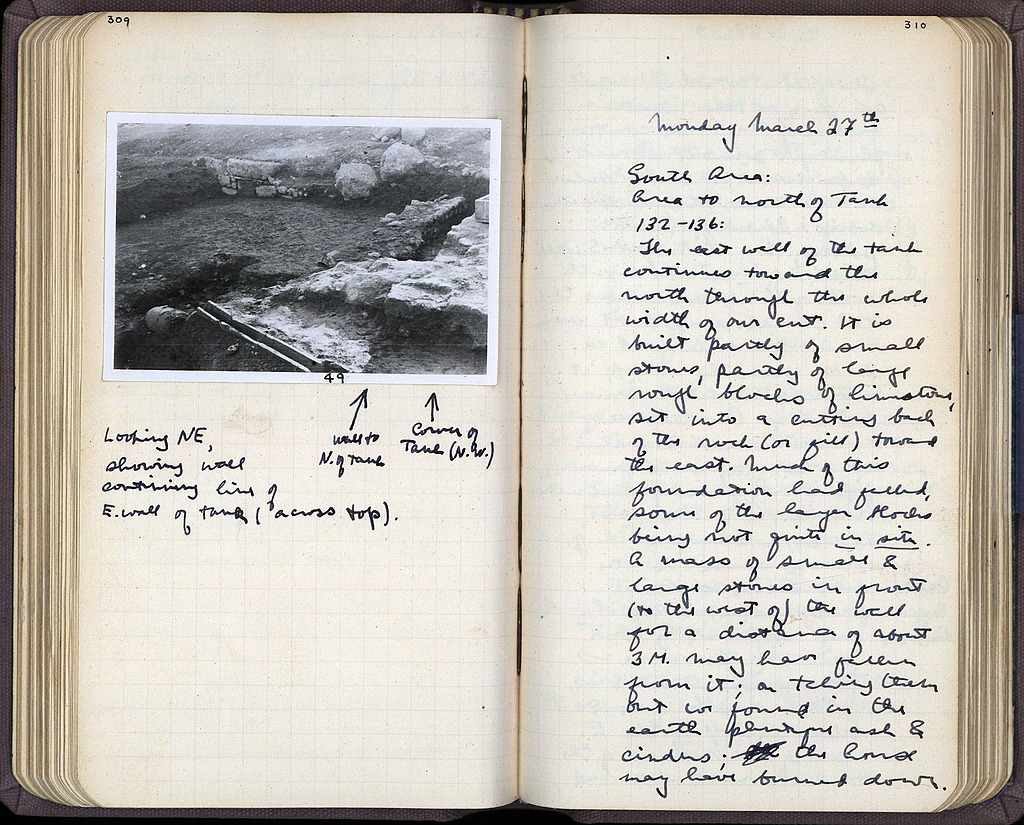 309
49
wall to
N. of Tank
Corner of
Tank (N.W.)
Looking NE,
showing wall
continuing line of
E. wall of tank (across top).
310
Monday March 27th
South Area:
Area to north of Tank
132-136:
The east wall of the tank
continues toward the
north through the whole
width of our cut. It is
built partly of small
stones, partly of large
rough blocks of limestone,
set into a cutting back
of the rock (or fill) toward
the east. Much of this
foundation had fallen,
some of the larger blocks
being not quite in situ.
A mass of small &
large stones in front
(to the west of) the wall
for a distance of about
3 M. may have fallen
from it; on taking them
out we found in the
earth plentiful ash &
cinders; the house
may have burned down.